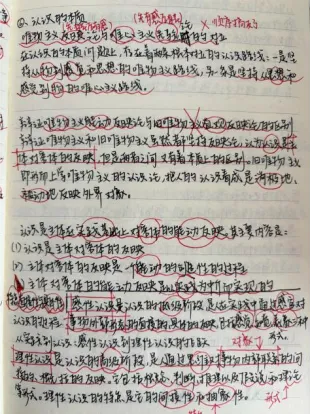 ② 认识的本质
唯物主义反映论与唯心主义先验论的对立
在认识的本质问题上，存在着两条根本对立的认识路线：一是坚
持从物到感觉和思想的唯物主义路线，另一条是坚持从思想和
感觉到物的唯心主义路线。
辩证唯物主义能动反映论与旧唯物主义直观反映论的区别
辩证唯物主义和旧唯物主义虽然都坚持反映论，认为认识是主
体对客体的反映，但是两者之间又有着本质上的区别。旧唯物主义
即形而上学唯物主义的认识论，把人的认识看成是消极地、
被动地反映外界对象。
认识是主体在实践基础上对客体的能动反映。其主要内容是：
(1) 认识是主体对客体的反映
(2) 主体对客体的反映是一个能动的创造性的过程
主体对客体的能动反映是以实践为中介实现的
感性认识是认识的低级阶段，是人在实践中通过感官对
事物外部形态的直接的、具体的反映，包括感觉、知觉、表象三种
从感性认识 到理性认识
理性认识是认识的高级阶段，是人们对事物内部联系的间
接的、概括的反映。它包括概念、判断、推理以及假说和理论
等形式。理性认识的特点是它的间接性和抽象性。